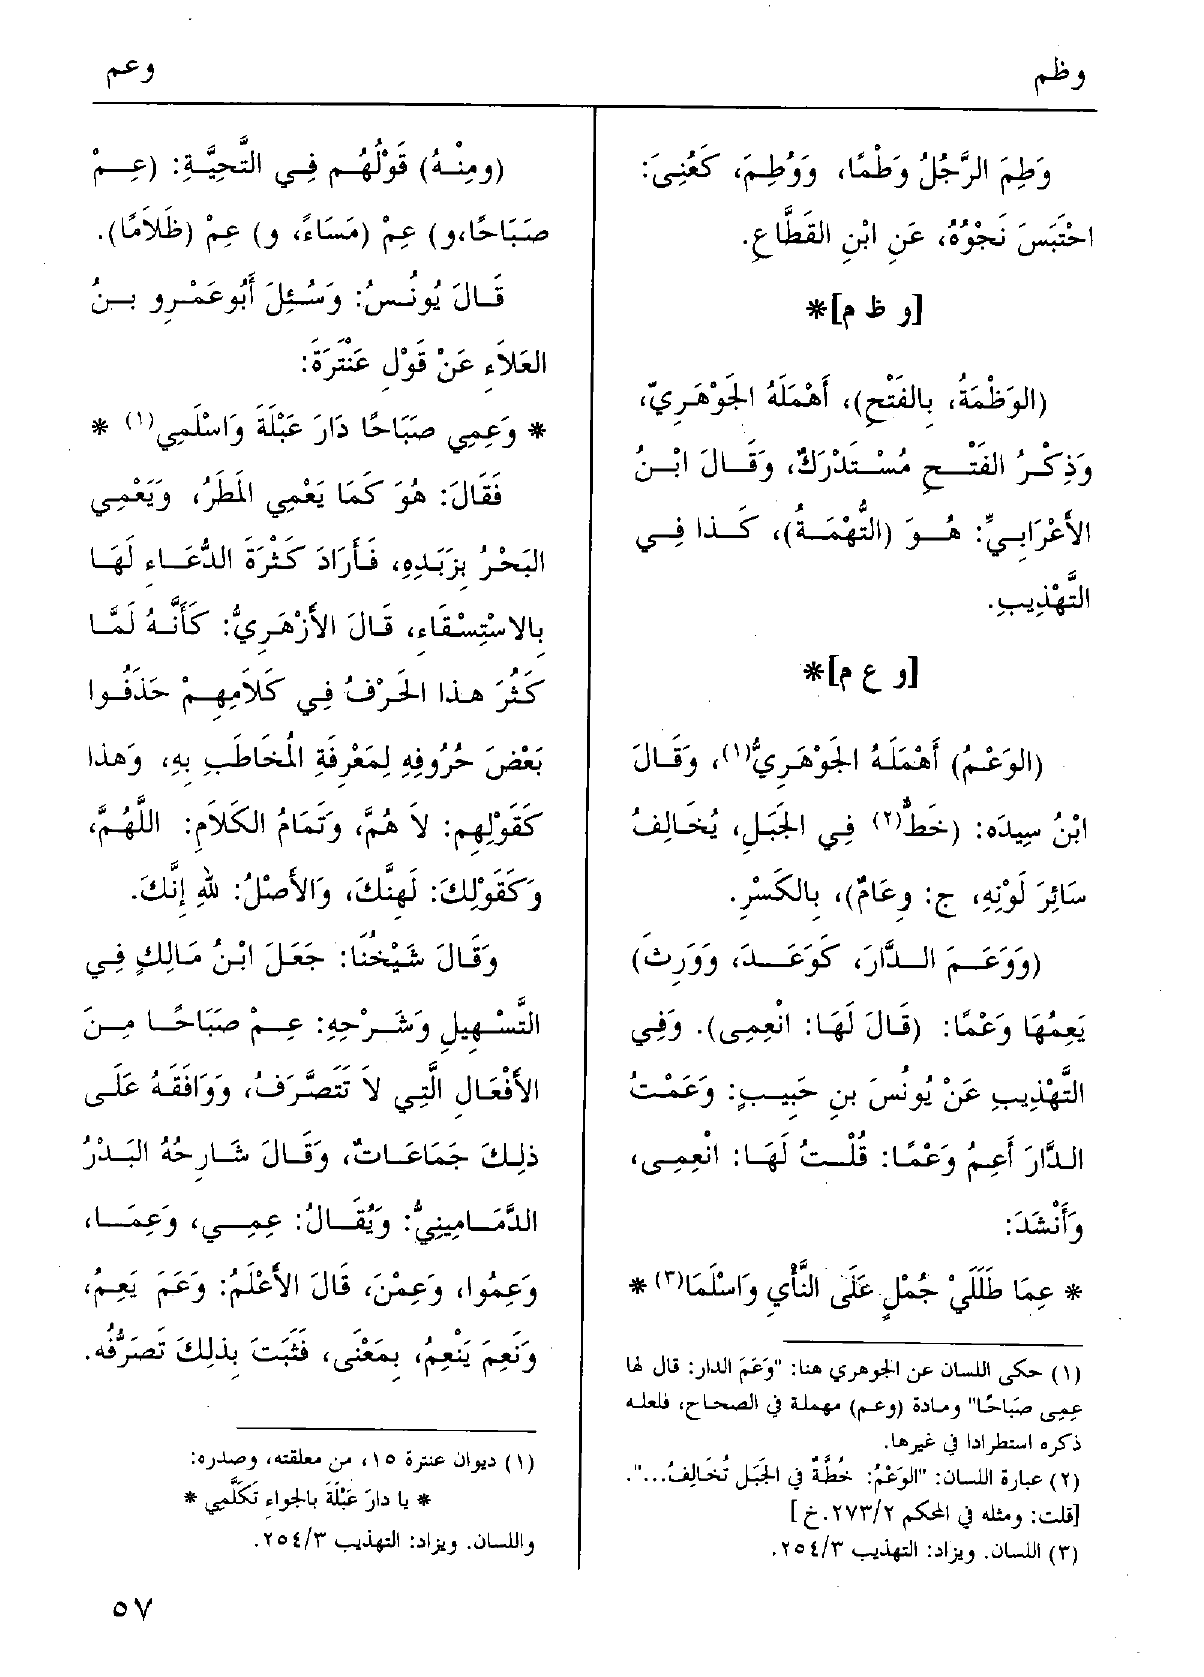 وظم
وعم
وَطِمَ الرَّجُلُ وَطْمًا، وَوُطِمَ، كَعُنِىَ:
احْتَبَسَ نَجْوُهُ، عَنِ ابْنِ القَطَّاعِ.
[و ظ م]*
(الوَظْمَةُ، بِالفَتْحِ)، أَهْمَلَهُ الجَوْهَرِيُّ،
وَذِكْرُ الفَتْحِ مُسْتَدْرَكٌ، وَقَالَ ابْنُ
الأَعْرَابِيِّ: هُوَ (التُّهْمَةُ)، كَذا فِي
التَّهْذِيبِ.
[و ع م]*
(الوَعْمُ) أَهْمَلَهُ الجَوْهَرِيُّ(١)، وَقَالَ
ابْنُ سِيدَه: (خَطٌّ(٢) فِي الجَبَلِ، يُخَالِفُ
سَائِرَ لَوْنِهِ، ج: وِعَامٌ)، بِالكَسْرِ.
(وَوَعَمَ الدَّارَ، كَوَعَدَ، وَوَرِثَ)
يَعِمُهَا وَعْمًا: (قَالَ لَهَا: انْعِمِى). وَفِي
التَّهْذِيبِ عَنْ يُونُسَ بنِ حَبِيبٍ: وَعَمْتُ
الدَّارَ أَعِمُ وَعْمًا: قُلْتُ لَهَا: انْعِمِى،
وَأَنْشَدَ:
* عِمَا طَلَلَيْ جُمْلٍ عَلَى النَّأْيِ وَاسْلَمَا(٣) *
(١) حكى اللسان عن الجوهري هنا: "وَعَمَ الدار: قال لها
عِمِى صَبَاحًا" ومادة (وعم) مهملة في الصحاح، فلعله
ذكره استطرادا في غيرها.
(٢) عبارة اللسان: "الوَعْمُ: خُطَّةٌ في الجَبَل تُخَالِفُ...".
[قلت: ومثله في المحكم ٢٧٣/٢.خ]
(٣) اللسان. ويزاد: التهذيب ٢٥٤/٣.
(ومِنْهُ) قَوْلُهُم فِي التَّحِيَّةِ: (عِمْ
صَبَاحًا،و) عِمْ (مَسَاءً، و) عِمْ (ظَلَامًا).
قَالَ يُونُسُ: وَسُئِلَ أَبُوعَمْرِو بنُ
العَلاَءِ عَنْ قَوْلِ عَنْتَرَةَ:
* وَعِمِي صَبَاحًا دَارَ عَبْلَةَ وَاسْلَمِي(١) *
فَقَالَ: هُوَ كَمَا يَعْمِي المَطَرُ، وَيَعْمِي
البَحْرُ بِزَبَدِهِ، فَأَرَادَ كَثْرَةَ الدُّعَاءِ لَهَا
بِالاسْتِسْقَاءِ، قَالَ الأَزْهَرِيُّ: كَأَنَّهُ لَمَّا
كَثُرَ هذا الحَرْفُ فِي كَلاَمِهِمْ حَذَفُوا
بَعْضَ حُرُوفِهِ لِمَعْرِفَةِ المُخَاطَبِ بِهِ، وَهذا
كَقَوْلِهِم: لاَ هُمَّ، وَتَمَامُ الكَلاَمِ: اللَّهُمَّ،
وَكَقَوْلِكَ: لَهِنَّكَ، وَالأَصْلُ: للهِ إِنَّكَ.
وَقَالَ شَيْخُنَا: جَعَلَ ابْنُ مَالِكٍ فِي
التَّسْهِيلِ وَشَرْحِهِ: عِمْ صَبَاحًا مِنَ
الأَفْعَالِ الَّتِي لاَ تَتَصَّرَفُ، وَوَافَقَهُ عَلَى
ذلِكَ جَمَاعَاتٌ، وَقَالَ شَارِحُهُ البَدْرُ
الدَّمَامِينِيُّ: وَيُقَالُ: عِمِي، وَعِمَا،
وَعِمُوا، وَعِمْنَ، قَالَ الأَعْلَمُ: وَعَمَ يَعِمُ،
وَنَعِمَ يَنْعِمُ، بِمَعْنًى، فَثَبَتَ بِذلِكَ تَصَرُّفُه.
(١) ديوان عنترة ١٥، من معلقته، وصدره:
* يا دارَ عَبْلَةَ بالجواءِ تَكَلَّمِي *
واللسان. ويزاد: التهذيب ٢٥٤/٣.
٥٧